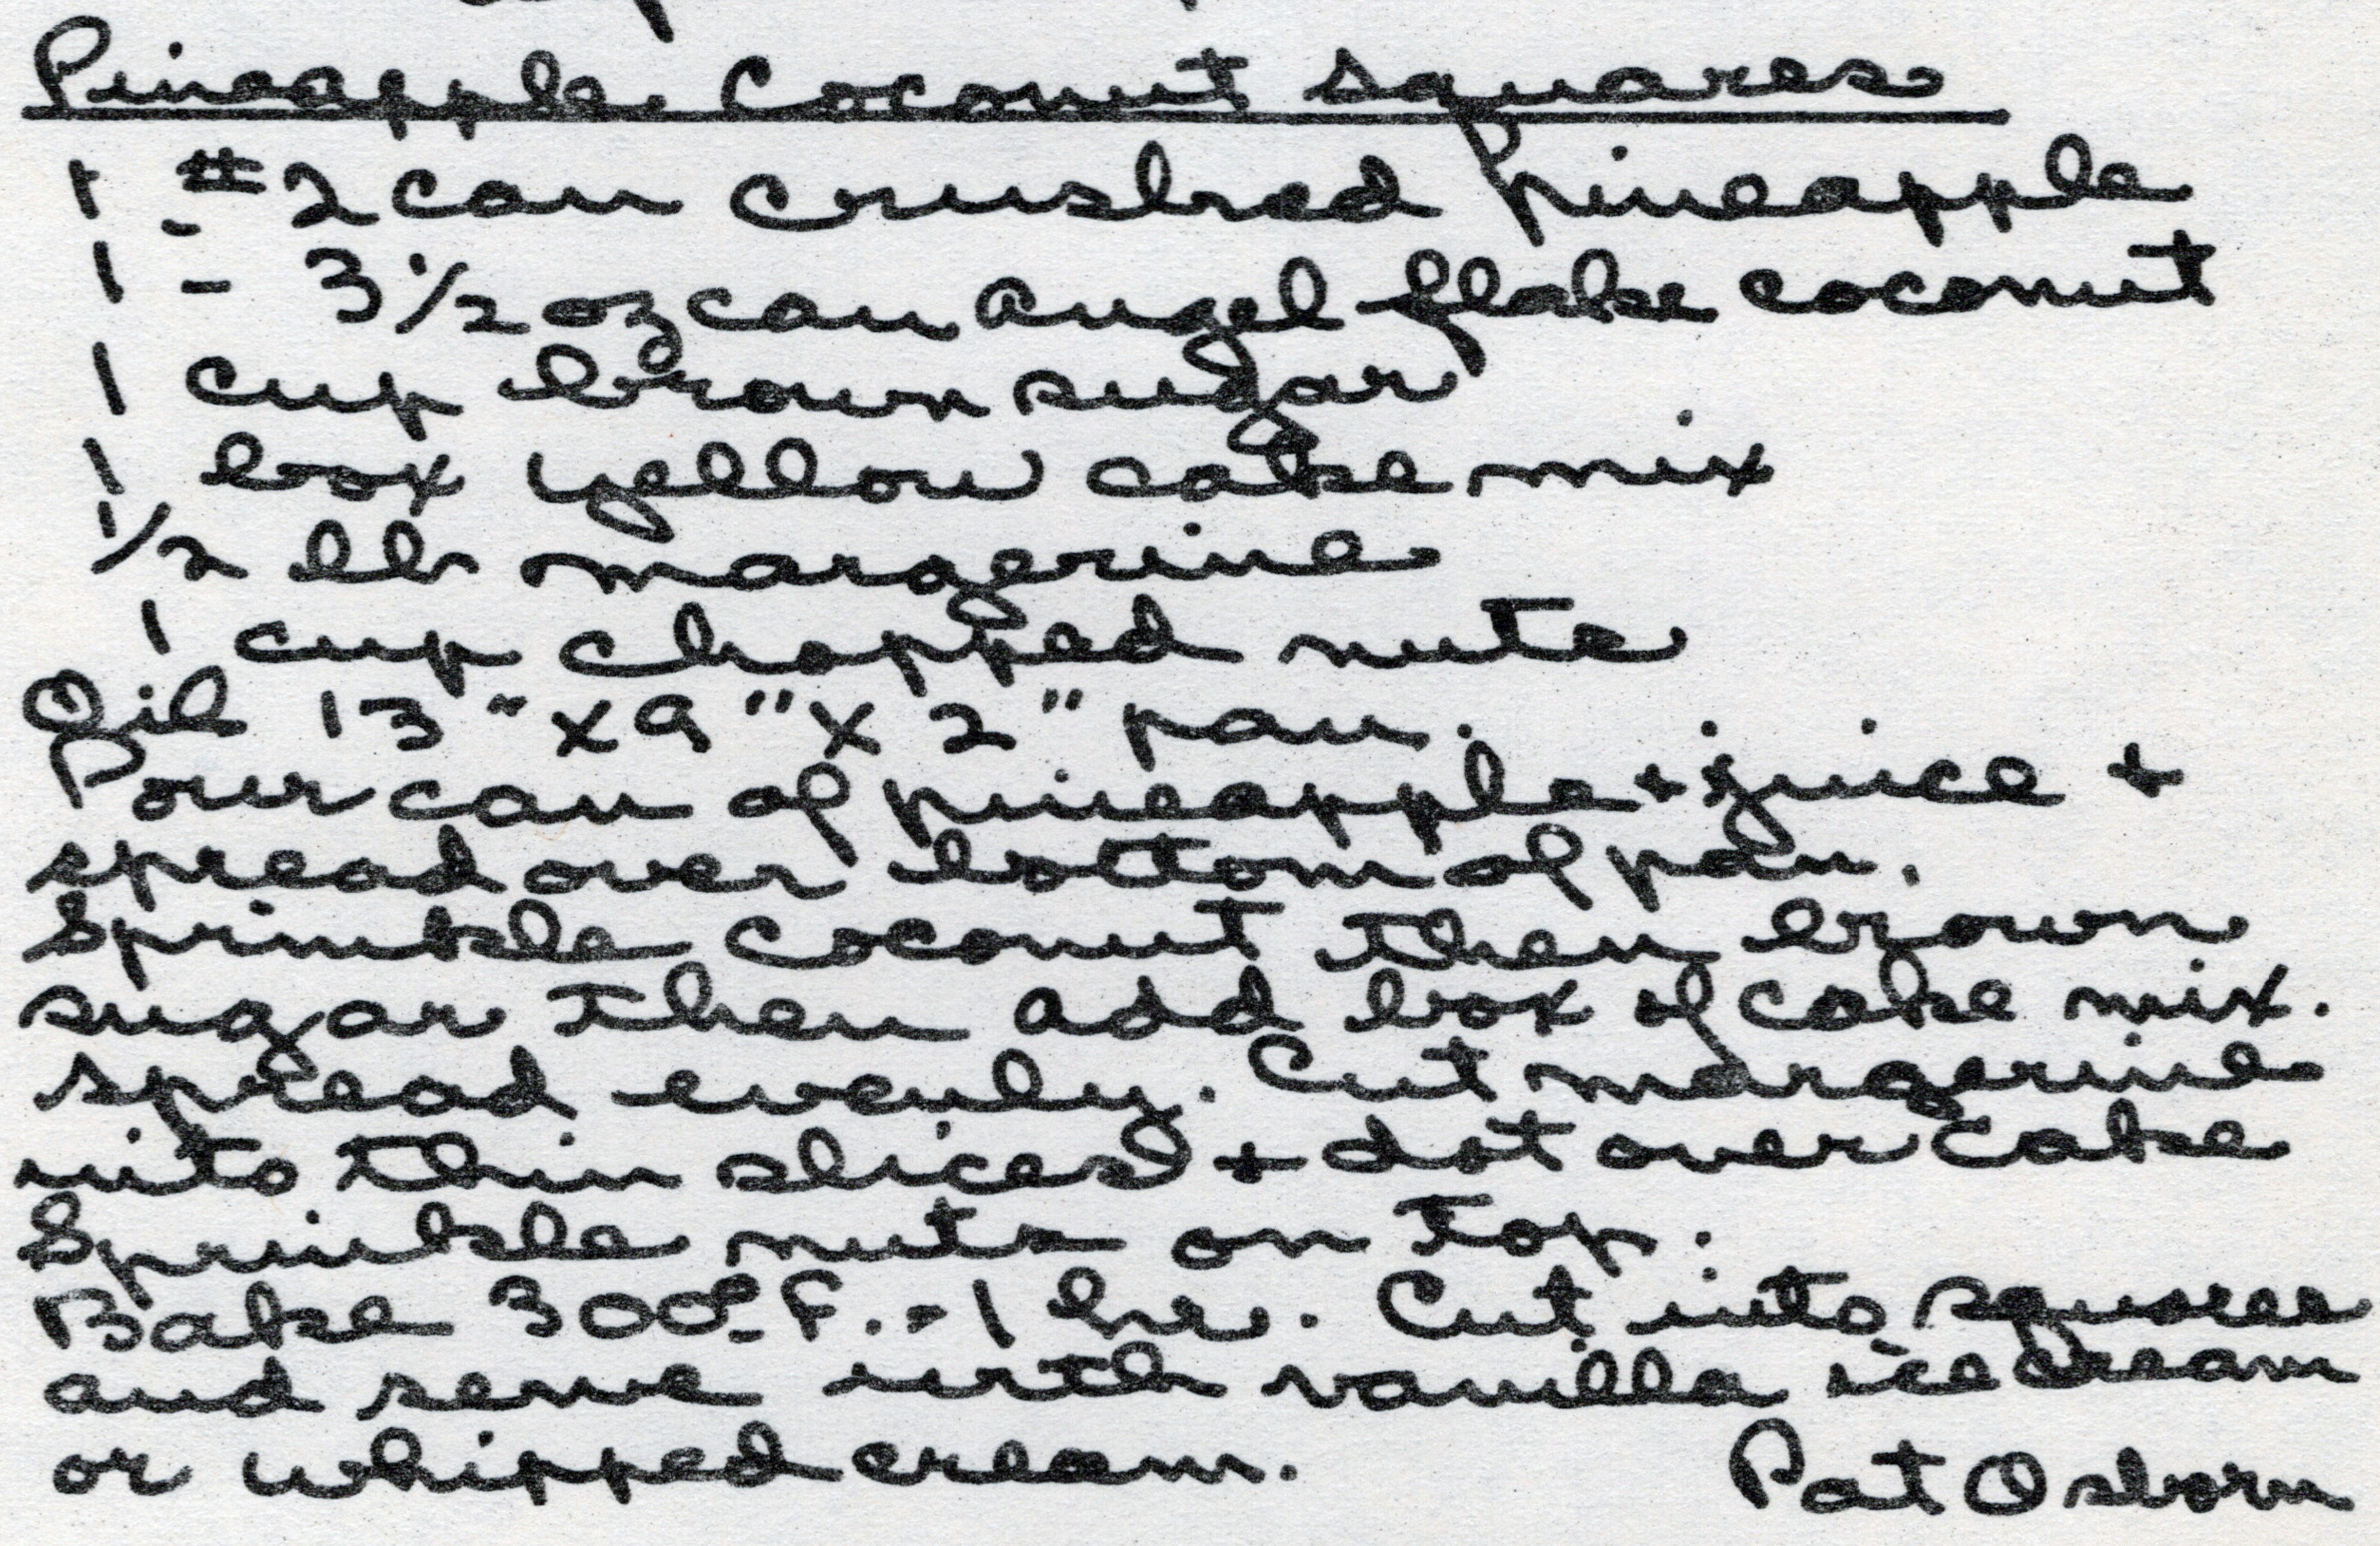 Pineapple Coconut Squares
1 #2 can crushed pineapple
1 - 3 1/2 oz can angel flake coconut
1 cup brown sugar
1 box yellow cake mix
1/2 lb margerine
1 cup chopped nuts
Oil 13" x 9" x 2" pan.
Pour can of pineapple + juice +
spread over bottom of pan.
Sprinkle coconut then brown
sugar then add box of cake mix.
Spread evenly. Cut margerine
into thin slices + dot over cake
Sprinkle nuts on top.
Bake 300° F. - 1 hr. Cut into squares
and serve with vanilla ice cream
or whipped cream.
Pat Osborn